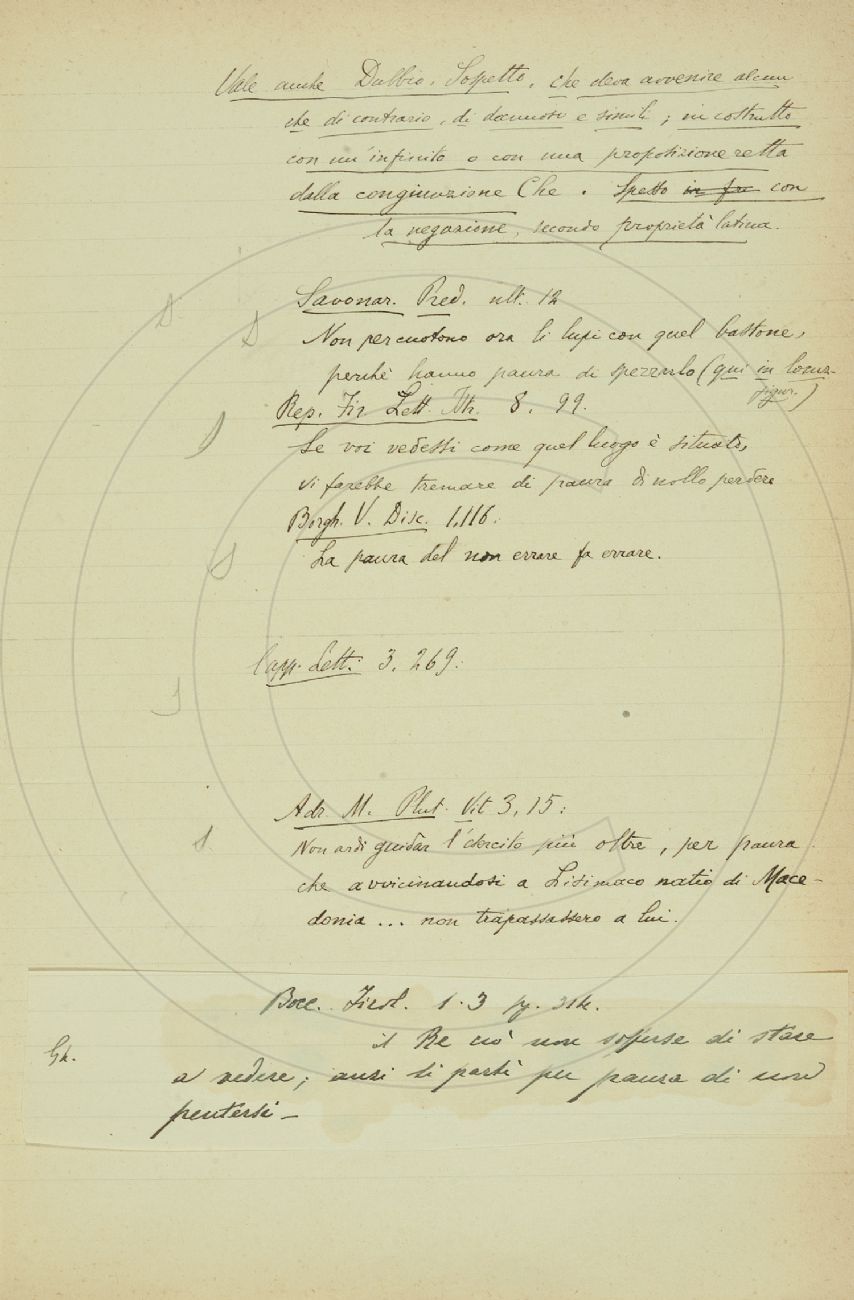 Vale anche Dubbio, Sospetto, che deva avvenire alcun
che di contrario, di dannoso e simili; in costrutto
con un'infinito o con una proposizione retta
dalla congiunzione Che. Spesso in fra con
la negazione, secondo proprietà latina.
Savonar. Pred. ult. 12
Non percuotono ora li lupi con quel bastone,
perchè hanno paura di spezzarlo (qui in locuz.
figur.)
Rep. Fir. Lett. 8. 99.
Se voi vedessi come quel luogo è situato,
vi farebbe tremare di paura di nollo perdere
Borgh. V. Disc. 1,116:
La paura del non errare fa errare.
Capp. Lett. 3. 269:
Adr. M. Plut. Vit 3, 15:
Non ardì guidar l'esercito più oltre, per paura
che avvicinandosi a Lisimaco natio di Mace-
donia ... non trapassassero a lui.
Bocc. 1. 3
Gh.
il Re ciò non soferse di stare
a vedere; anzi si partì per paura di non
pentersi —